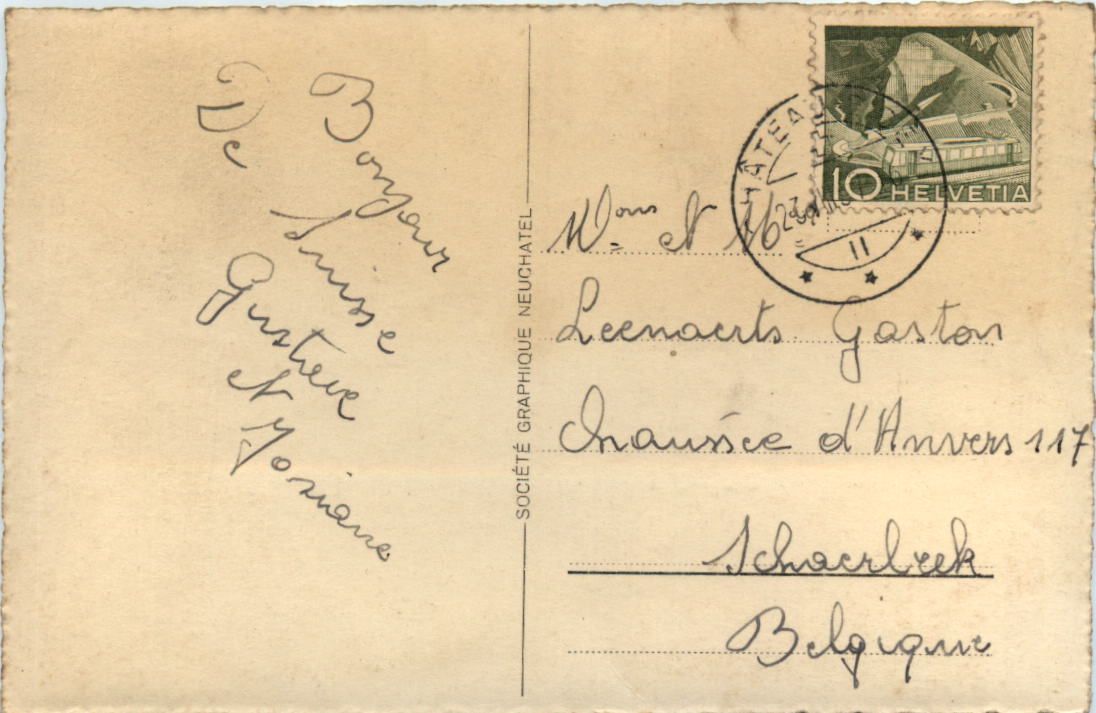 Bonjour
De Suisse
Gustave
et Josiane
SOCIÉTÉ GRAPHIQUE NEUCHATEL
10 HELVETIA
CHÂTEAU
II
Mons et M
Leenaerts Gaston
Chaussée d'Anvers 117
Schaerbeek
Belgique